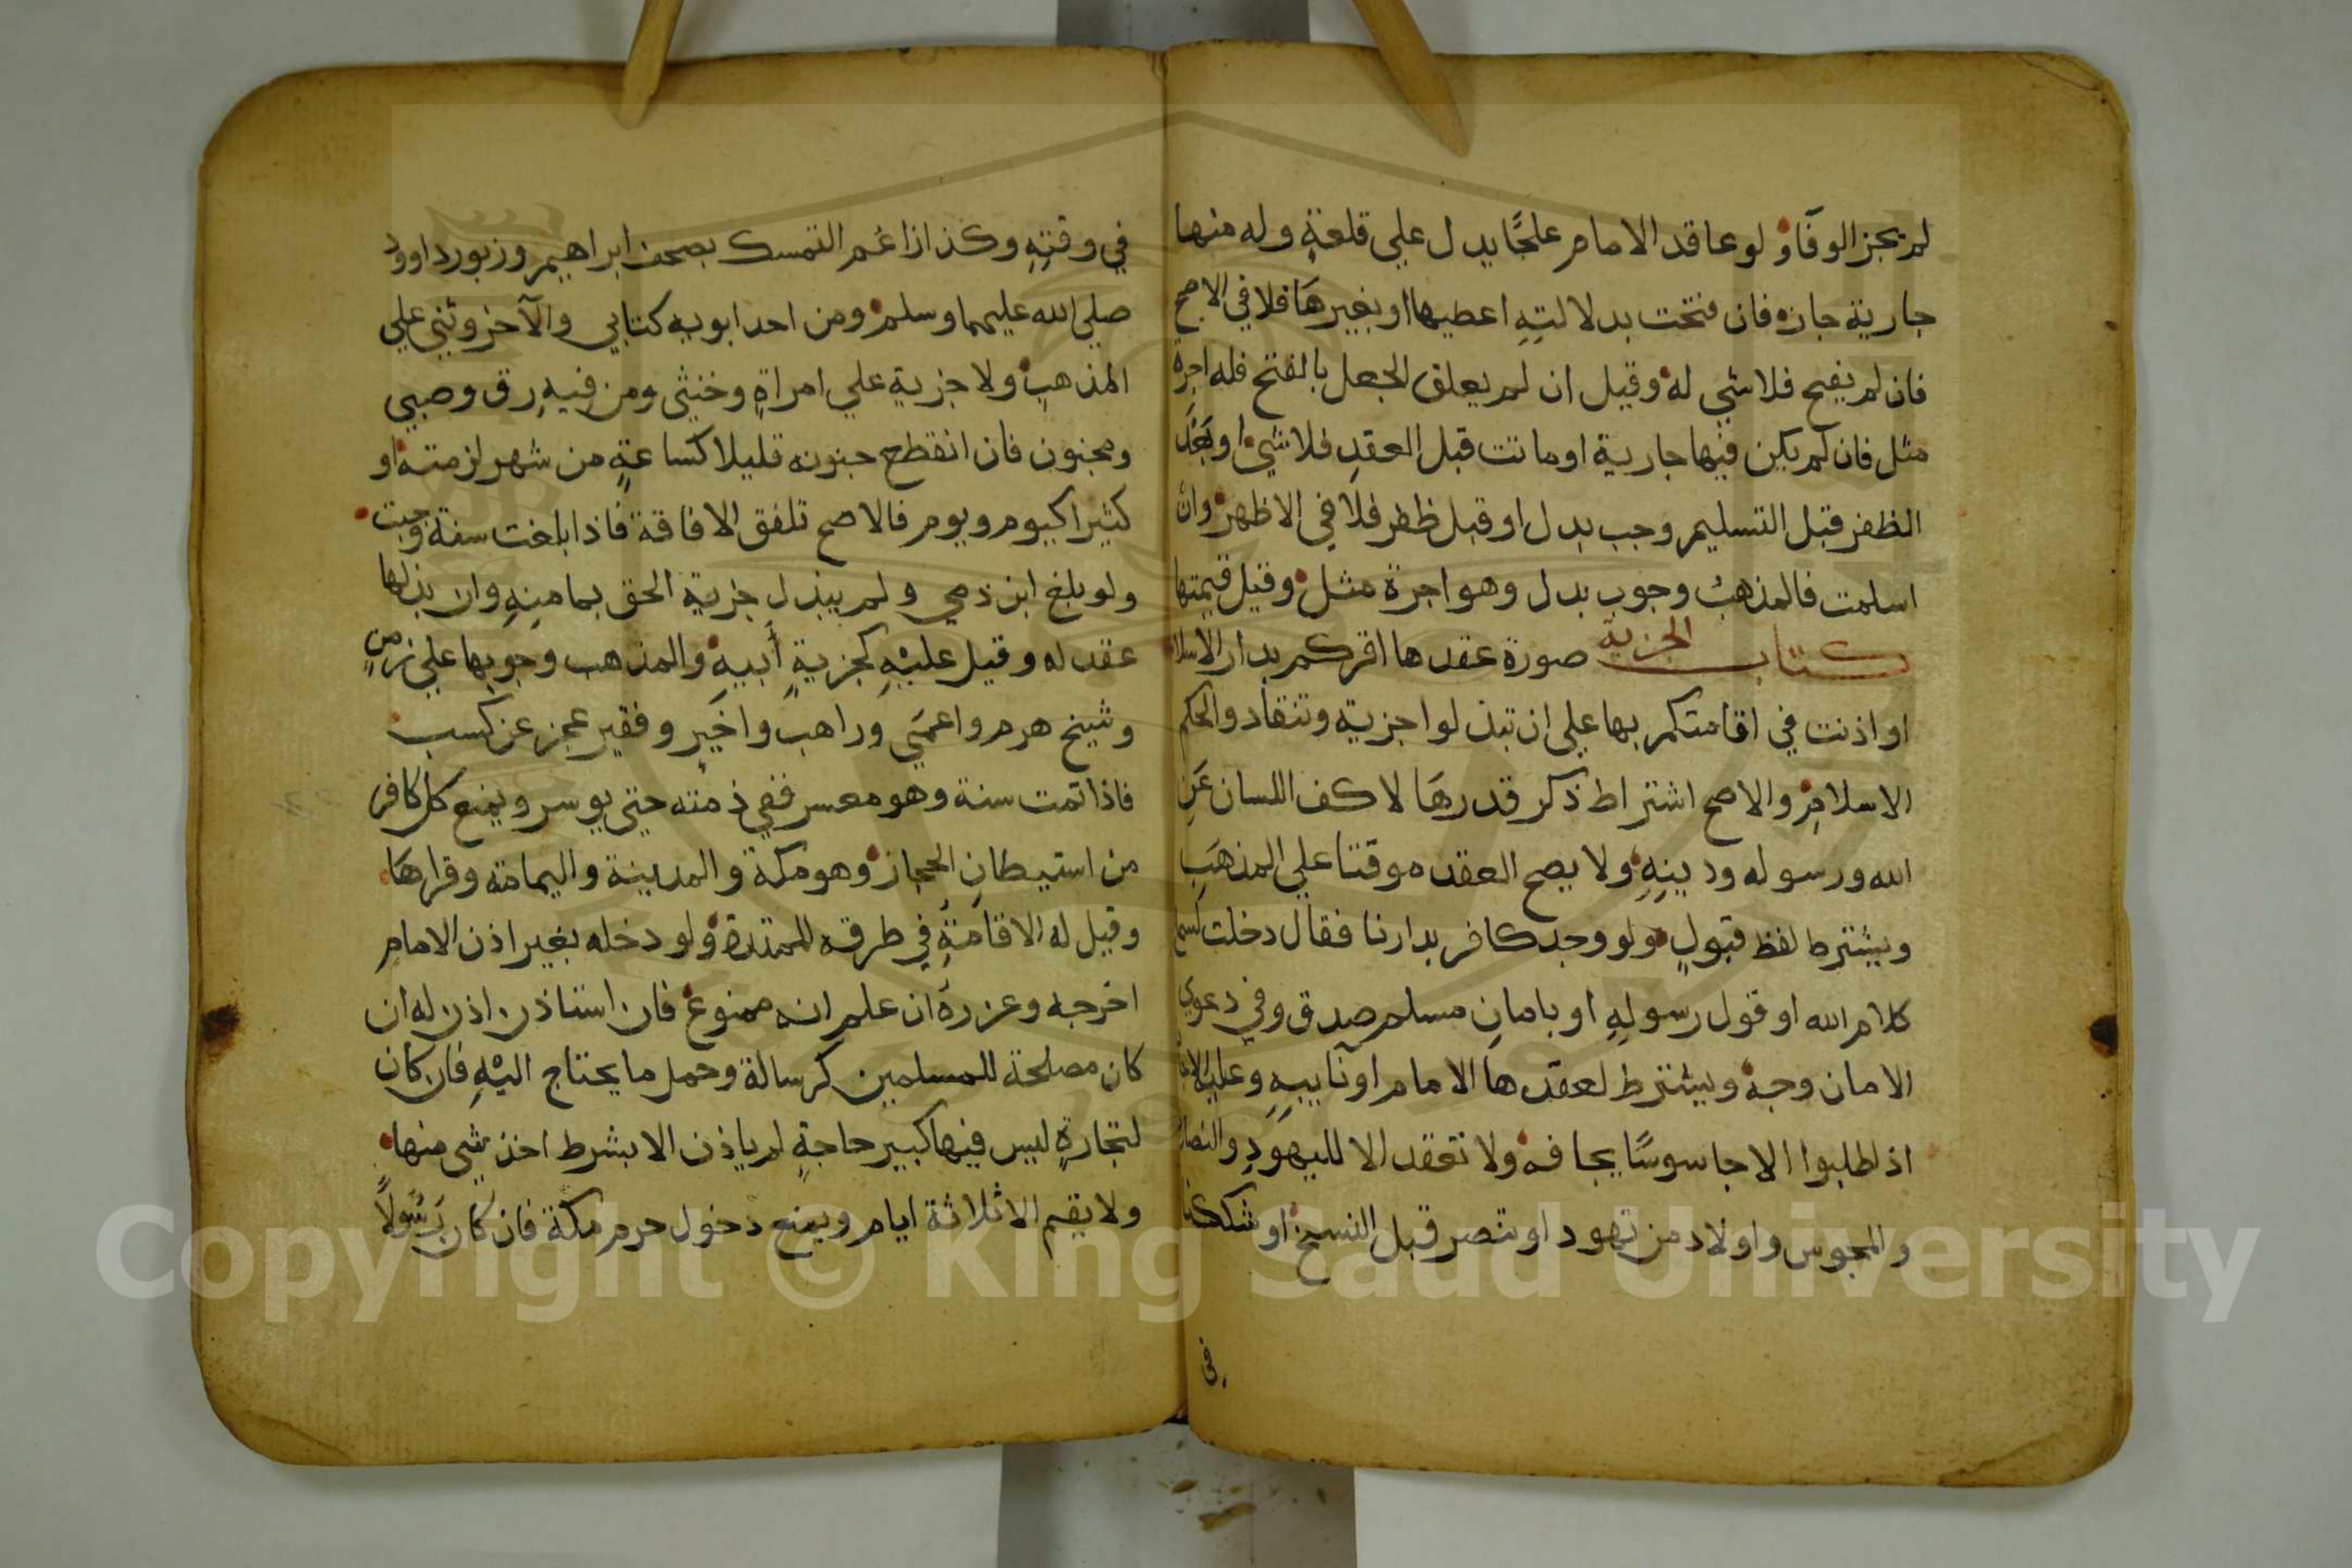 لم يجز الوفا ولو عاقد الامام علجًا يدل علي قلعةٍ وله منها
جارية جازه فان فتحت بدلالتهِ اعطيها او بغيرهَا فلا في الاصح
فان لم يفتح فلا شي له وقيل ان لم يعلق الجعل بالفتح فله اجرة
مثل فان لم يكن فيها جارية او ماتت قبل العقدِ فلا شيء او بَعْدَ
الظفر قبل التسليم وجب بدل او قبل ظفر فلا في الاظهر وان
اسلمت فالمذهبُ وجوب بدل وهو اجرة مثل وقيل قيمتها
كتاب الجزية صورة عقدها اقركم بدار الاسلا
او اذنت في اقامتكم بها علي ان تبذلوا جزية وتنقادوا لحكم
الاسلامِ والاصح اشتراط ذكر قدرهَا لا كف اللسان عَنِ
الله ورسوله ودينِهِ ولا يصح العقد موقتا علي المذهَبِ
ويشترط لفظ قبولٍ ولو وجد كافر بدارنا فقال دخلت لسماع
كلام الله او قول رسولِهِ او بامانِ مسلم صدق وفي دعوي
الامان وجه ويشترط لعقدها الامام او نآيبِهِ وعليه الاجا
اذ اطلبوا الا جاسوسًا يخافه ولا تعقد الا لليهودِ والنصار
والمجوس واولاد من تهود او تنصر قبل النسخ او شككنا
في
في وقتِهِ وكذا زاعم التمسك بصحف ابراهيم وزبور داوود
صلي الله عليهما وسلم ومن احد ابويه كتابي والآخر وثني علي
المذهبِ ولا جزية علي امراةٍ وخنثى ومن فيهِ رق وصبي
ومجنون فان انقطع جنونه قليلا كساعةٍ من شهر لزمته او
كثيرا كيوم ويوم فالاصح تلفق الافاقة فاذا بلغت سنة وجبت
ولو بلغ ابن ذمي ولم يبذل جزية الحق بمامنِهِ وان بذلها
عقد له وقيل عليْهِ كجزيةِ أبيهِ والمذهب وجوبها علي زمنٍ
وشيخ هرم واعمَي وراهب واخيرٍ وفقير عجز عن كسب
فاذا تمت سنة وهو معسر ففي ذمته حتي يوسر ويمنع كل كافر
من استيطانِ الحجاز وهو مكة والمدينة واليمامة وقراهَا
وقيل له الاقامةُ في طرقه الممتدة ولو دخله بغير اذن الامامِ
اخرجه وعزره ان علم انه ممنوع فان استاذن اذن له ان
كان مصلحة للمسلمين كرسالة وحمل ما يحتاج اليْهِ فان كان
لتجارةٍ ليس فيها كبير حاجةٍ لم ياذن الا بشرط اخذ شي منها
ولا يقيم الا ثلاثة ايام ويمنع دخول حرم مكة فان كان رَسُولاً
Copyright © King Saud University